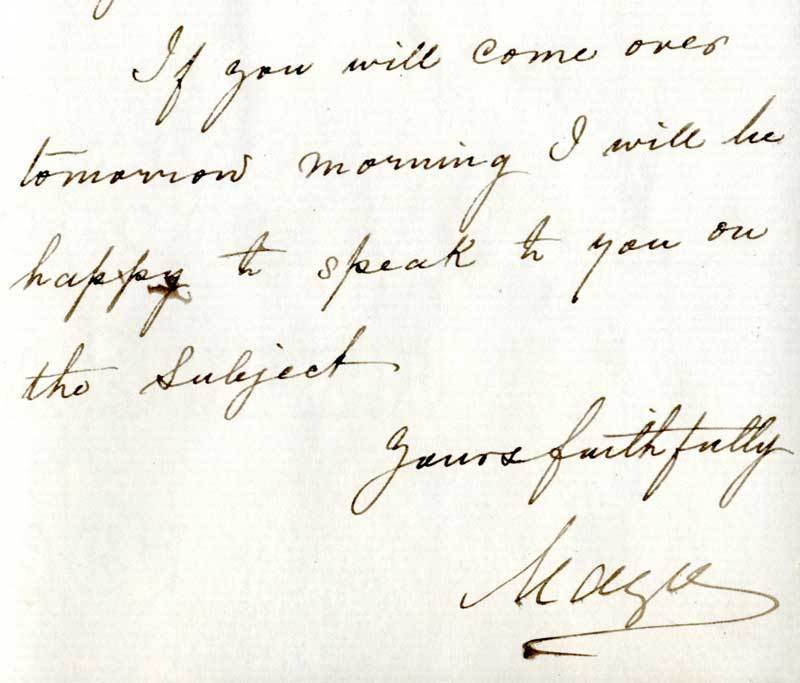 If you will come over
tomorrow morning I will be
happy to speak to you on
the Subject
Yours faithfully
Mayo